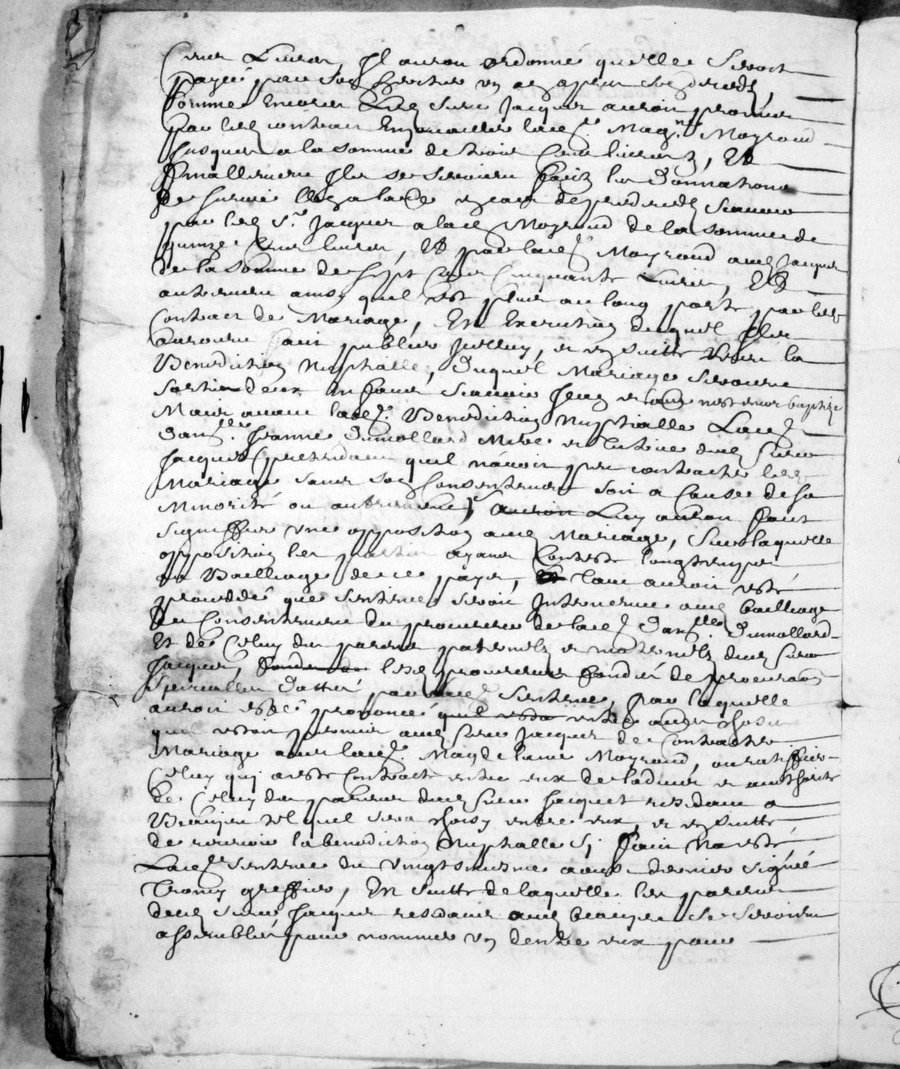 Cens Livres, Il auroit ordonné quelle seroit
payée par ses heritiers un an apres son deceds,
Comme encores led. sieur Jacquet auroit promis
par led. contract Enjouailler lad. Magne Moyroud
Jusques a la somme de trois Cens livres, Et
finallement Ils se seroient faict les Donnations
de survie
par led. Sr. Jacquet a lad. Moyroud de la somme de
quinze Cens livres, Et par lad. Moyroud aud. Jacquet
de la somme de sept Cens Cinquante Livres, Et
autrement ainsy quil est plus au long porté par led.
Contract de Mariage, En Execution duquel Ils
auroient faict publier Iceluy, et en suitte receu la
Benediction Nuptialle, Duquel Mariage seroient
sortis deux enfans scavoir
Mais avant lad. Benediction Nuptialle Lad.
Damlle. Jeanne Dumollard Mere et tutrice dud. sieur
Jacquet pretendant quil n'avoit peu contracter led.
Mariage sans son Consentement soit a Cause de sa
Minorité ou autrement, Luy auroit faict
signiffier une opposition aud. Mariage, Sur laquelle
opposition les parties ayant Contesté longtemps
au Bailliage de ce pays, auroit esté
procedé que sentence seroit Intervenue aud. Bailliage
du Consentement du procureur de lad. Damlle. Dumollard
Et de Celuy des parens paternels et maternels dud. sieur
Jacquet, led. procureur fondé de procuration
Specialle Datté par lad. Sentence, par laquelle
auroit esté prononcé
quil estoit permis aud. sieur Jacquet de Contracter
Mariage avec lad. Magdelaine Moyroud, ou ratiffier
Celuy qui a esté Contracté entre eux de ladvis et authorité
de Celuy des parens dud. sieur Jacquet residant a
Beaujeu tel quil sera choisy entre eux, et en suitte
de recevoir la benediction Nuptialle sy faict n'a esté,
Lad. Sentence du vingt aoust dernier signée
Troncy greffier, En suitte de laquelle les parens
dud. sieur Jacquet residans aud. Beaujeu se seroient
assemblés pour nommer un dentre eux pour